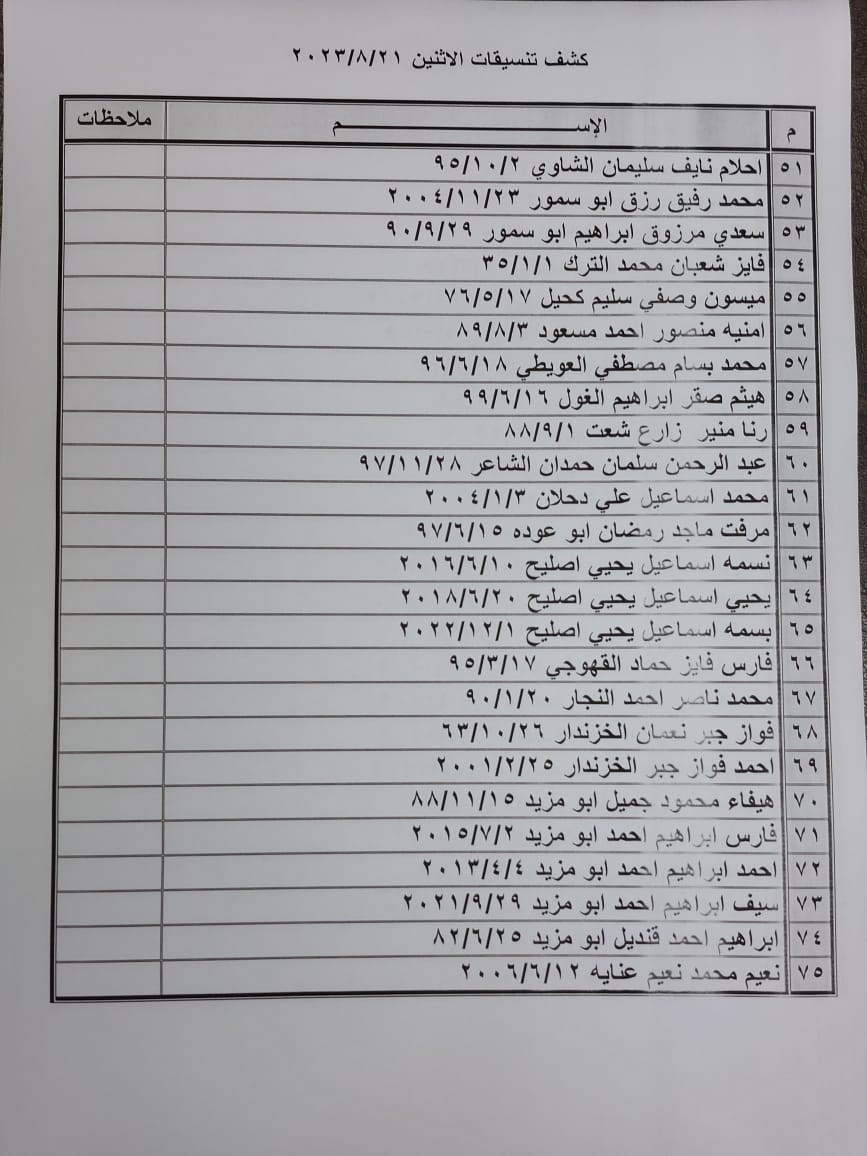 كشف تنسيقات الاثنين ٢٠٢٣/٨/٢١
م الإســـــــــم ملاحظات
٥١ احلام نايف سليمان الشاوي ٩٥/١٠/٢
٥٢ محمد رفيق رزق ابو سمور ٢٠٠٤/١١/٢٣
٥٣ سعدي مرزوق ابراهيم ابو سمور ٩٠/٩/٢٩
٥٤ فايز شعبان محمد الترك ٣٥/١/١
٥٥ ميسون وصفي سليم كحيل ٧٦/٥/١٧
٥٦ امنيه منصور احمد مسعود ٨٩/٨/٣
٥٧ محمد بسام مصطفي العويطي ٩٦/٦/١٨
٥٨ هيثم صقر ابراهيم الغول ٩٩/٦/١٦
٥٩ رنا منير زارع شعت ٨٨/٩/١
٦٠ عبد الرحمن سلمان حمدان الشاعر ٩٧/١١/٢٨
٦١ محمد اسماعيل علي دحلان ٢٠٠٤/١/٣
٦٢ مرفت ماجد رمضان ابو عوده ٩٧/٦/١٥
٦٣ نسمه اسماعيل يحيي اصليح ٢٠١٦/٦/١٠
٦٤ يحيي اسماعيل يحيي اصليح ٢٠١٨/٦/٢٠
٦٥ بسمه اسماعيل يحيي اصليح ٢٠٢٢/١٢/١
٦٦ فارس فايز حماد القهوجي ٩٥/٣/١٧
٦٧ محمد ناصر احمد النجار ٩٠/١/٢٠
٦٨ فواز جبر نعمان الخزندار ٦٣/١٠/٢٦
٦٩ احمد فواز جبر الخزندار ٢٠٠١/٢/٢٥
٧٠ هيفاء محمود جميل ابو مزيد ٨٨/١١/١٥
٧١ فارس ابراهيم احمد ابو مزيد ٢٠١٥/٧/٢
٧٢ احمد ابراهيم احمد ابو مزيد ٢٠١٣/٤/٤
٧٣ سيف ابراهيم احمد ابو مزيد ٢٠٢١/٩/٢٩
٧٤ ابراهيم احمد قنديل ابو مزيد ٨٢/٦/٢٥
٧٥ نعيم محمد نعيم عنايه ٢٠٠٦/٦/١٢